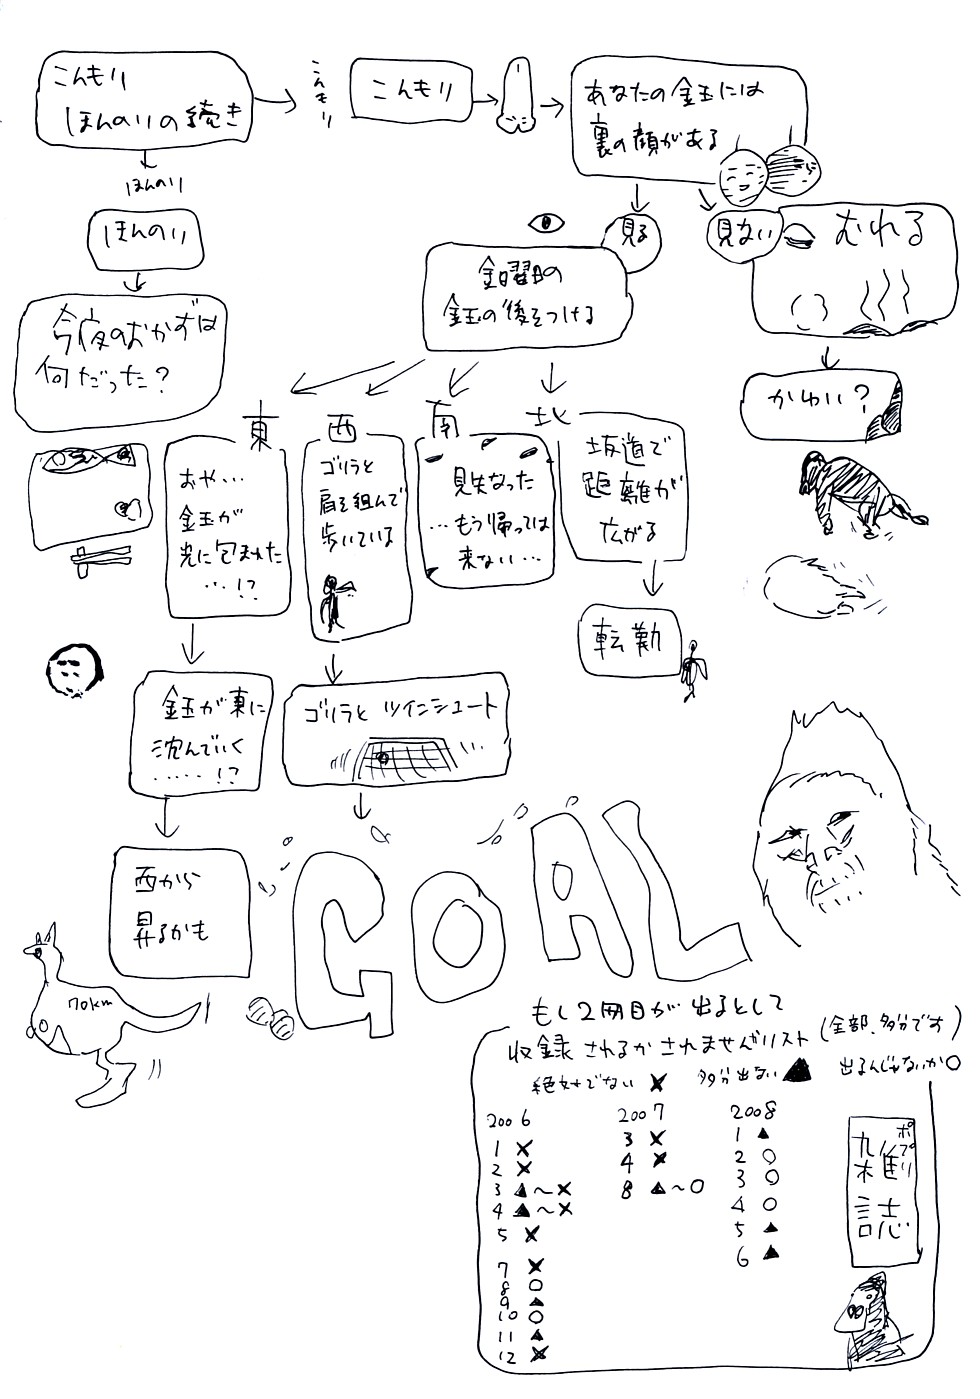 こんもり
ほんのりの続き
こんもり
こんもり
あなたの金玉には
裏の顔がある
ほんのり
ほんのり
見る
見ない
むれる
金曜日の
金玉の後をつける
今夜のおかずは
何だった?
かわい?
東
西
南
北
おや…
金玉が
光に包まれた
…!?
ゴリラと
肩を組んで
歩いている
見失なった
…もう帰っては
来ない…
坂道で
距離が
広がる
転勤
金玉が東に
沈んでいく
……!?
ゴリラと ツインシュート
西から
昇るかも
GOAL
70km
もし2冊目が出るとして
収録されるかされませんがリスト(全部、多分です)
絶対でない ✕ 多分出ない ▲ 出るんじゃないか○
2006
1 ✕
2 ✕
3 ▲~✕
4 ▲~✕
5 ✕
7 ✕
8 ○
9 ▲
10 ○
11 ▲
12 ✕
2007
3 ✕
4 ✕
8 ▲~○
2008
1 ▲
2 ○
3 ○
4 ○
5 ▲
6 ▲
ポプリ
雑誌